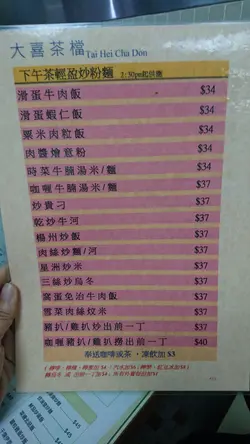 大喜茶檔 Tai Hei Cha Don
下午茶輕盈炒粉麵 2:30pm起供應
滑蛋牛肉飯 $34
滑蛋蝦仁飯 $34
粟米肉粒飯 $34
肉醬燴意粉 $34
時菜牛腩湯米/麵 $34
咖喱牛腩湯米/麵 $37
炒貴刁 $37
乾炒牛河 $37
楊州炒飯 $37
肉絲炒麵/河 $37
星洲炒米 $37
三絲炒烏冬 $37
窩蛋免治牛肉飯 $37
雪菜肉絲炆米 $37
豬扒/雞扒炒出前一丁 $37
咖喱豬扒/雞扒撈出前一丁 $40
舉送咖啡或茶，凍飲加 $3
$45
$45